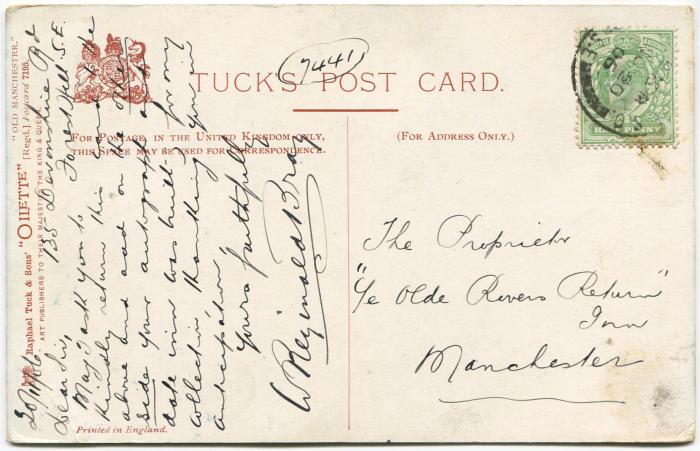 TUCK'S POST CARD.
FOR POSTAGE IN THE UNITED KINGDOM ONLY,
THIS SPACE MAY BE USED FOR CORRESPONDENCE.
(FOR ADDRESS ONLY.)
7441
HALFPENNY
The Proprietor
"Ye Olde Rovers Return"
Inn
Manchester
135 Devonshire Rd
Forest Hill S.E.
20/11/06
Dear Sir,
May I ask you to
kindly return this card to the
above and add on the other
side your autograph and
date inn was built for my
collection, thanking you in
anticipation
Yours faithfully
W Reginald Bray
"OLD MANCHESTER."
Raphael Tuck & Sons' "OILETTE" [Regd.] Postcard 7195.
ART PUBLISHERS TO THEIR MAJESTIES THE KING & QUEEN.
Printed in England.